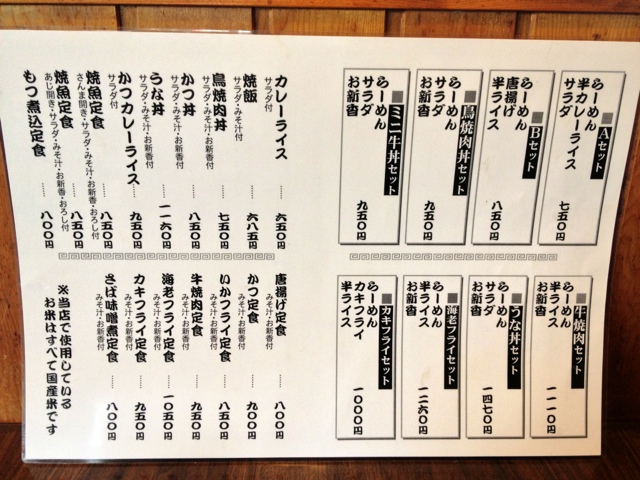 ■Aセット
らーめん
半カレーライス
サラダ
七五〇円
■Bセット
らーめん
唐揚げ
半ライス
八五〇円
■鳥焼肉丼セット
らーめん
サラダ
お新香
九五〇円
■ミニ牛丼セット
らーめん
サラダ
お新香
九五〇円
■牛焼肉セット
らーめん
半ライス
お新香
一一一〇円
■うな丼セット
らーめん
サラダ
お新香
一四七〇円
■海老フライセット
らーめん
半ライス
お新香
一二六〇円
■カキフライセット
らーめん
カキフライ
半ライス
一〇〇〇円
カレーライス……六五〇円
サラダ付
焼飯……六八五円
サラダ・みそ汁付
鳥焼肉丼……七五〇円
サラダ・みそ汁・お新香付
かつ丼……八五〇円
サラダ・みそ汁・お新香付
うな丼……一一六〇円
サラダ・みそ汁・お新香付
かつカレーライス……九五〇円
サラダ付
焼魚定食……八五〇円
さんま開き・サラダ・みそ汁・お新香・おろし付
焼魚定食……八五〇円
あじ開き・サラダ・みそ汁・お新香・おろし付
もつ煮込定食……八〇〇円
唐揚げ定食……八〇〇円
みそ汁・お新香付
かつ定食……九〇〇円
みそ汁・お新香付
いかフライ定食……八五〇円
みそ汁・お新香付
牛焼肉定食……九五〇円
みそ汁・お新香付
海老フライ定食……一〇五〇円
みそ汁・お新香付
カキフライ定食……九五〇円
みそ汁・お新香付
さば味噌煮定食……八〇〇円
みそ汁・お新香付
※当店で使用している
お米はすべて国産米です